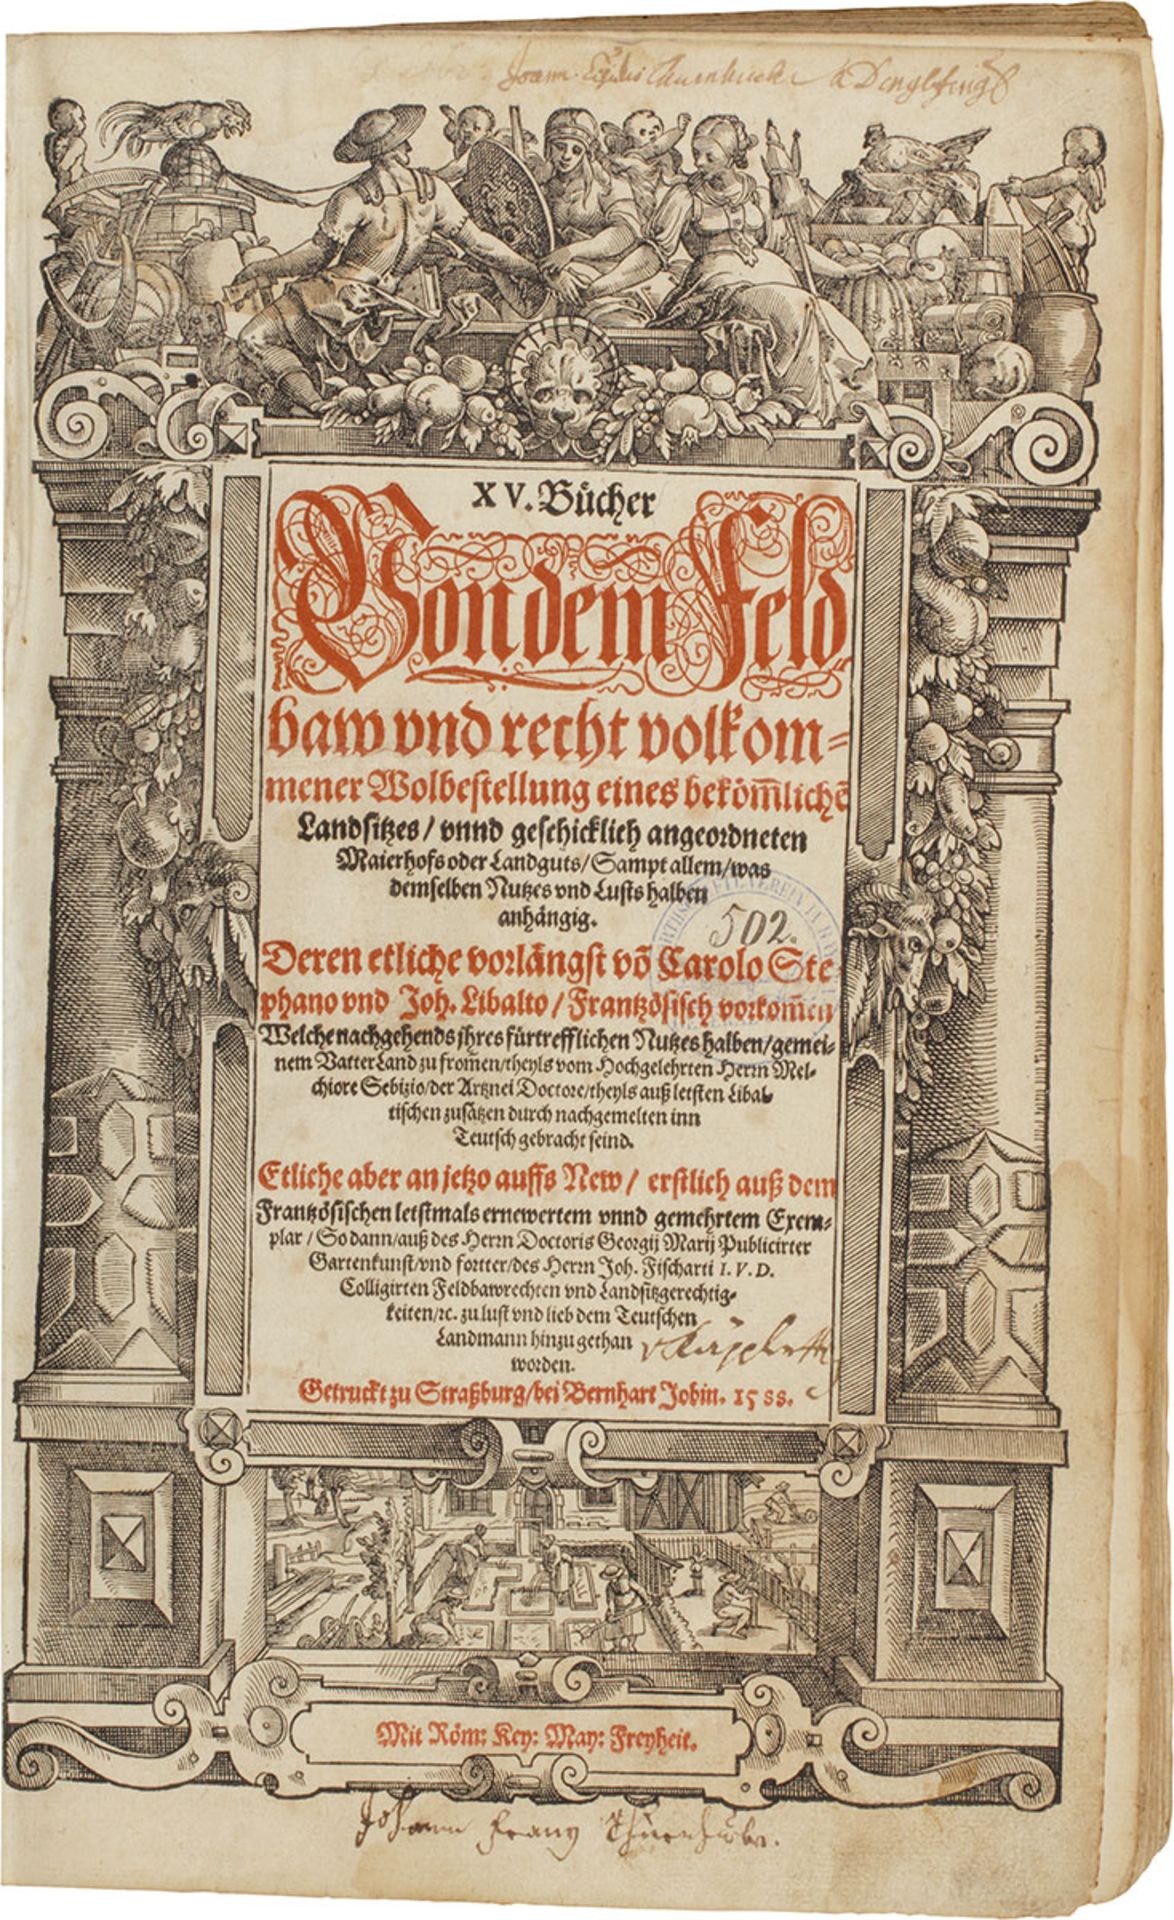 Joann
XV. Bücher
Von dem Feld
baw vnd recht volkom=
mener Wolbestellung eines bekom̃lichẽ
Landsitzes / vnnd geschicklich angeordneten
Maierhofs oder Landguts / Sampt allem / was
demselben Nutzes vnd Lusts halben
anhängig.
502.
Deren etliche vorlängst võ Carolo Ste-
phano vnd Joh. Libalto / Frantzösisch vorkom̃en
Welche nachgehends jhres fürtrefflichen Nutzes halben / gemei-
nem Vatter Land zu fromen / theyls vom Hochgelehrten Herrn Mel-
chiore Sebizio / der Artznei Doctore / theyls auß letsten Libal-
tischen zusätzen durch nachgemelten inn
Teutsch gebracht seind.
Etliche aber an jetzo auffs New / erstlich auß dem
Frantzösischen letstmals ernewertem vnnd gemehrtem Exem-
plar / So dann / auß des Herrn Doctoris Georgij Marij Publicirter
Gartenkunst / vnd fortter / des Herrn Joh. Fischarti I. V. D.
Colligirten Feldbawrechten vnd Landsitzgerechtig-
keiten / ꝛc. zu lust vnd lieb dem Teutschen
Landmann hinzu gethan
worden.
Getruckt zu Straßburg / bei Bernhart Jobin. 1588.
Mit Röm: Key: May: Freyheit.
Johann Franz